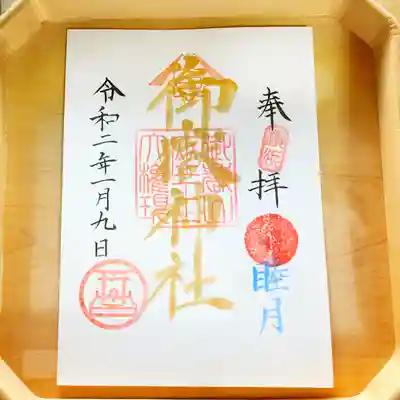 奉拝
睦月
御嶽神社
令和二年一月九日